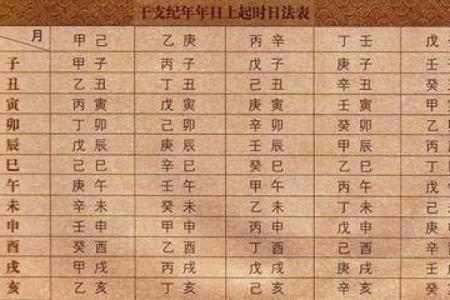 干支纪年年日上起时日法表
月 甲己 乙庚 丙辛 丁壬 戊
子 甲子 丙子 戊子 庚子 壬
丑 乙丑 丁丑 己丑 辛丑 癸
寅 丙寅 戊寅 庚寅 壬寅 甲
卯 丁卯 己卯 辛卯 癸卯 乙
辰 戊辰 庚辰 壬辰 甲辰 丙
巳 己巳 辛巳 癸巳 乙巳 丁
午 庚午 壬午 甲午 丙午 戊
未 辛未 癸未 乙未 丁未 己
申 壬申 甲申 丙申 戊申 庚
酉 癸酉 乙酉 丁酉 己酉 辛
戌 甲戌 丙戌 戊戌 庚戌 壬
亥 乙亥 丁亥 己亥 辛亥 癸